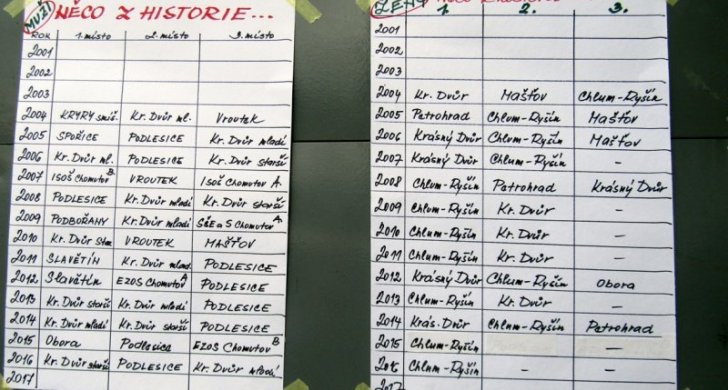 MUŽI NĚCO Z HISTORIE...
ROK 1. místo 2. místo 3. místo
2001
2002
2003
2004 KRYRY smíš. Kr. Dvůr ml. Vroutek
2005 SPOŘICE PODLESICE Kr. Dvůr mladí
2006 Kr. Dvůr ml. PODLESICE Kr. Dvůr starší
2007 ISOŠ Chomutov B VROUTEK ISOŠ Chomutov A
2008 PODLESICE Kr. Dvůr mladí Kr. Dvůr starší
2009 PODBOŘANY Kr. Dvůr mladí Chomutov A
2010 Kr. Dvůr Sta. VROUTEK MAŠŤOV
2011 SLAVĚTÍN Kr. Dvůr mlad. PODLESICE
2012 Slavětín EZOS Chomutov A PODLESICE
2013 Kr. Dvůr starší Kr. Dvůr mladí PODLESICE
2014 Kr. Dvůr mladí Kr. Dvůr starší PODLESICE
2015 Obora Podlesice EZOS Chomutov B
2016 Kr. Dvůr starší PODLESICE Kr. Dvůr mladí
2017
ŽENY
1. 2. 3.
2001
2002
2003
2004 Kr. Dvůr Mašťov Chlum-Ryšín
2005 Petrohrad Chlum-Ryšín Mašťov
2006 Krásný Dvůr Chlum-Ryšín Mašťov
2007 Krásný Dvůr Chlum-Ryšín –
2008 Chlum-Ryšín Petrohrad Krásný Dvůr
2009 Chlum-Ryšín Kr. Dvůr –
2010 Chlum-Ryšín Kr. Dvůr –
2011 Chlum-Ryšín Kr. Dvůr –
2012 Krásný Dvůr Chlum-Ryšín Obora
2013 Chlum-Ryšín Kr. Dvůr –
2014 Krás. Dvůr Chlum-Ryšín Petrohrad
2015 Chlum-Ryšín – –
2016 Chlum-Ryšín – –
2017